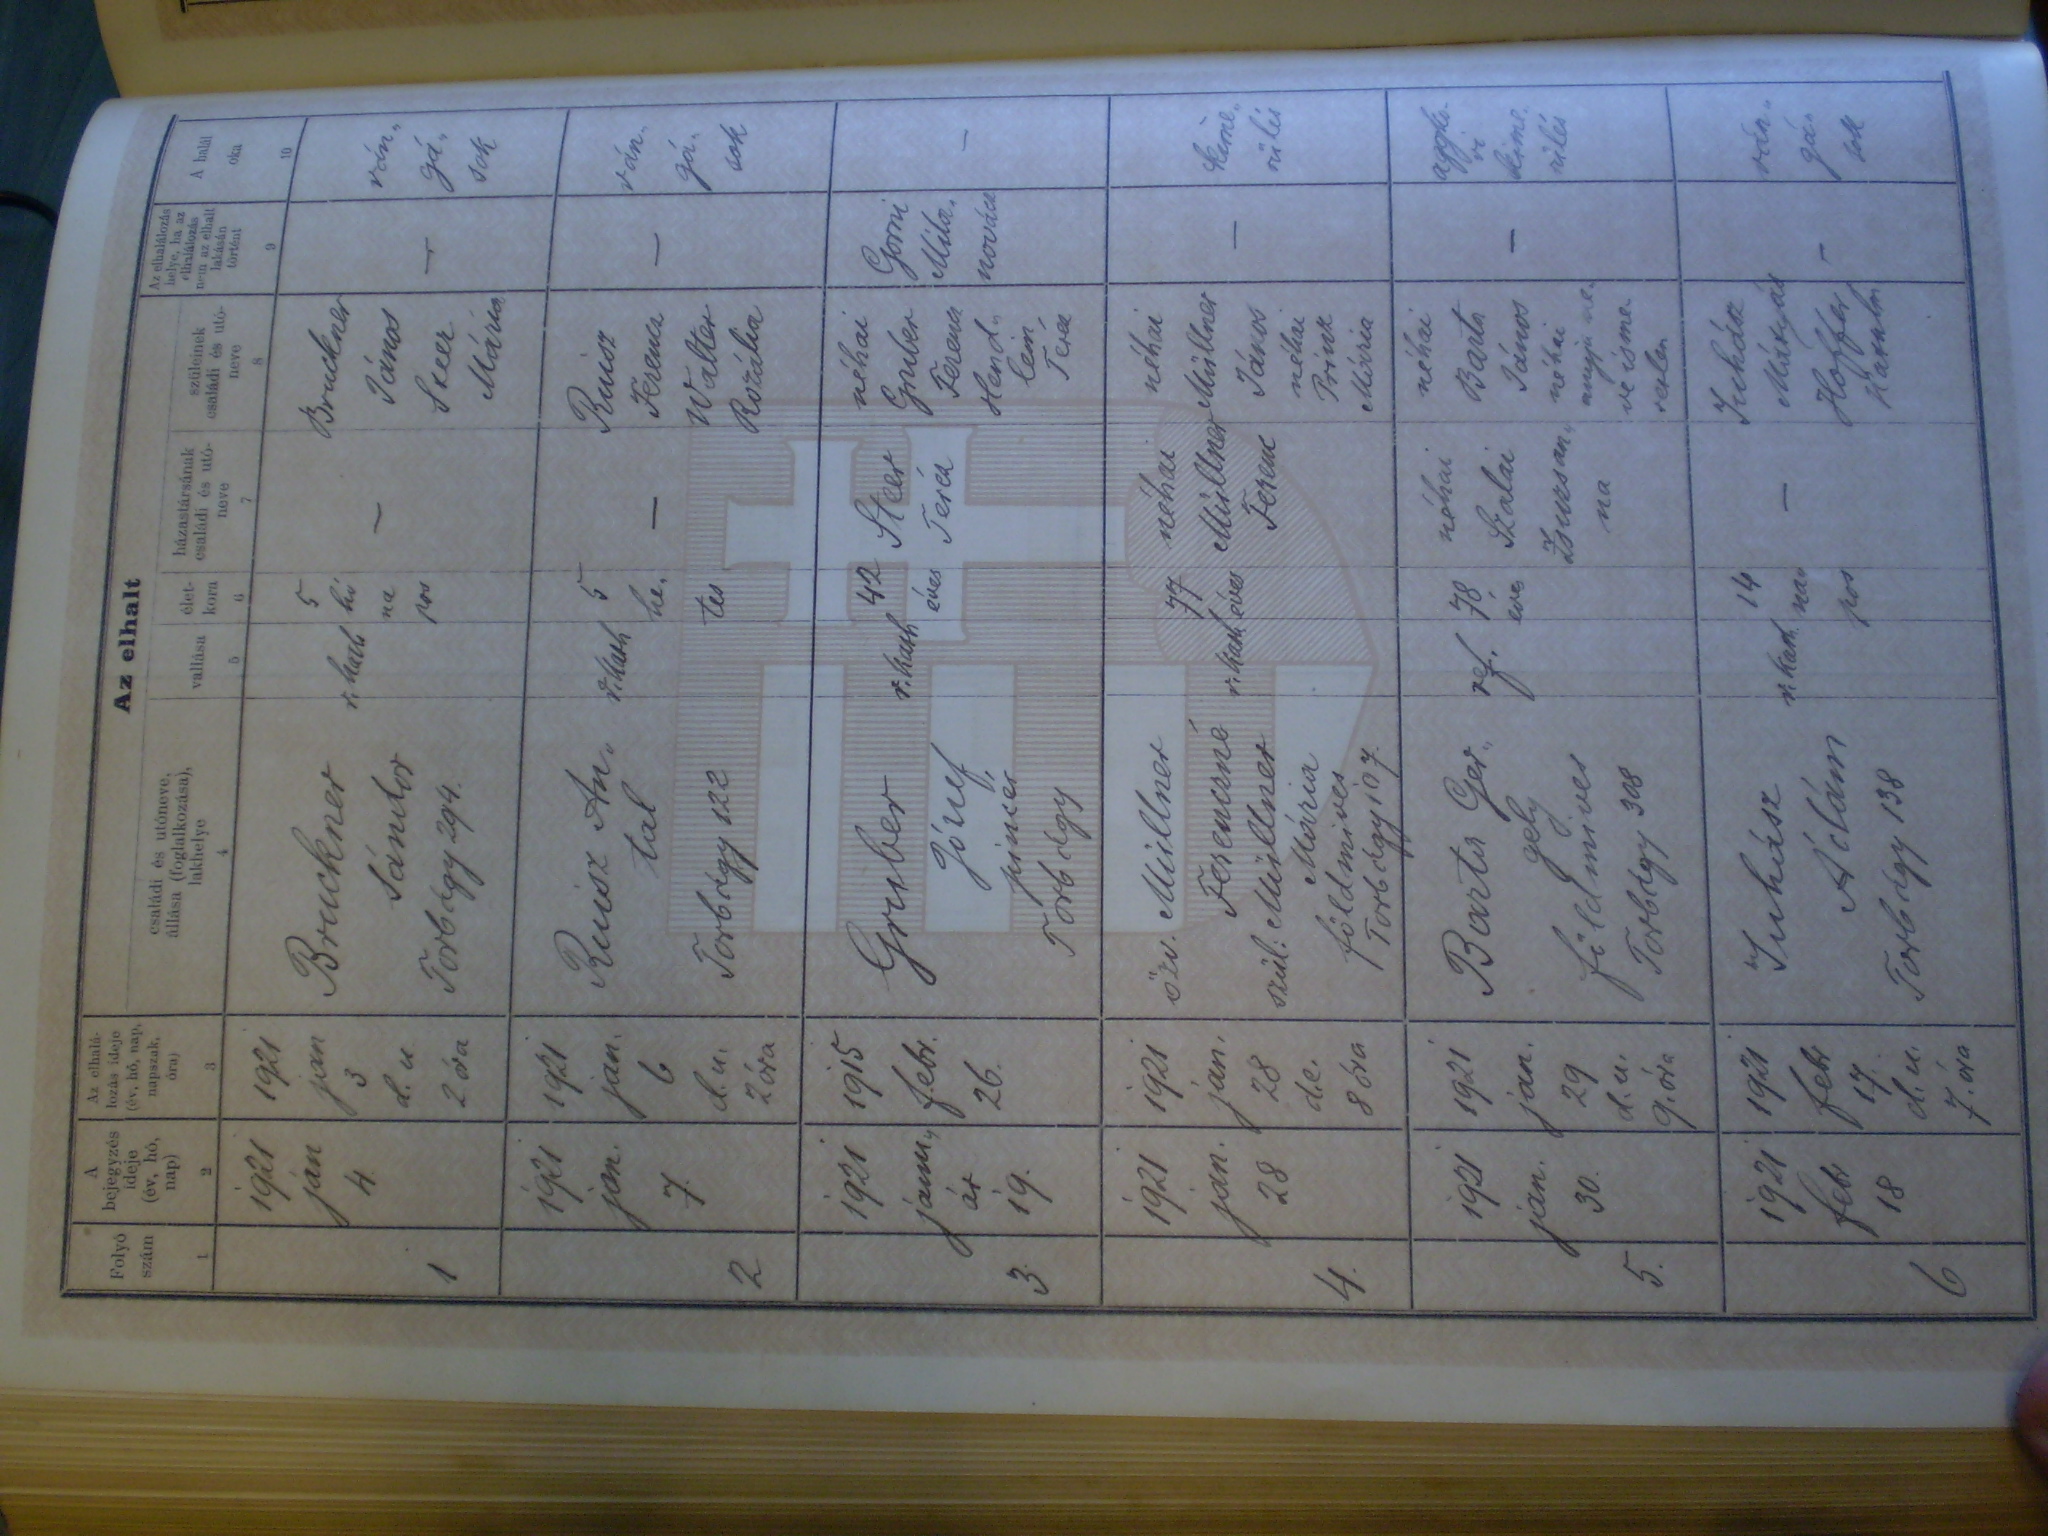 Az elhalt
Folyó
szám
A
bejegyzés
ideje
(év, hó,
nap)
Az elhalá-
lozás ideje
(év, hó, nap,
napszak,
óra)
családi és utóneve,
állása (foglalkozása),
lakhelye
vallása
élet-
kora
házastársának
családi és utó-
neve
szüleinek
családi és utó-
neve
Az elhalálozás
helye, ha az
elhalálozás
nem az elhalt
lakásán
történt
A halál
oka
1
2
3
4
5
6
7
8
9
10
1
1921
jan
4.
1921
jan
3
d.u.
2 óra
Bruckner
Sándor
Torbágy 294.
r. kath
5
hó
na
pos
—
Bruckner
János
Steer
Mária
—
rán„
gá„
sok
2
1921
jan.
7.
1921
jan.
6
d.u.
2 óra
Ruisz An„
tal
Torbágy 122
r. kath
5
he„
tes
—
Ruisz
Ferenc
Walter
Rozália
—
rán„
gá„
sok
3.
1921
janu„
ár
19.
1915
febr.
26.
Gruber
József,
pincér
Torbágy
r. kath
42
éves
Steer
Teréz
néhai
Gruber
Ferenc
Hend„
lein
Teréz
Gorni
Mila„
novác
—
4.
1921
jan.
28
1921
jan.
28
de.
8 óra
özv. Müllner
Ferencné
szül: Müllner
Mária
földmives
Torbágy 107.
r. kath
77
éves
néhai
Müllner
Ferenc
néhai
Müllner
János
néhai
Prinz
Mária
—
kime„
rülés
5.
1921
jan.
30.
1921
jan.
29
d.u.
9. óra
Barta Ger„
gely
földmives
Torbágy 308
ref.
78
éves
néhai
Szalai
Zsuzsan„
na
néhai
Barta
János
néhai
anyja ne„
ve isme„
retlen
—
aggko„
ri
kime„
rülés
6
1921
febr
18
1921
febr
17.
d.u.
7. óra
Juhász
Ádám
Torbágy 138
r. kath
14
na„
pos
—
Juhász
Mátyás
Hoffer
Katalin
—
rán„
gá„
sok